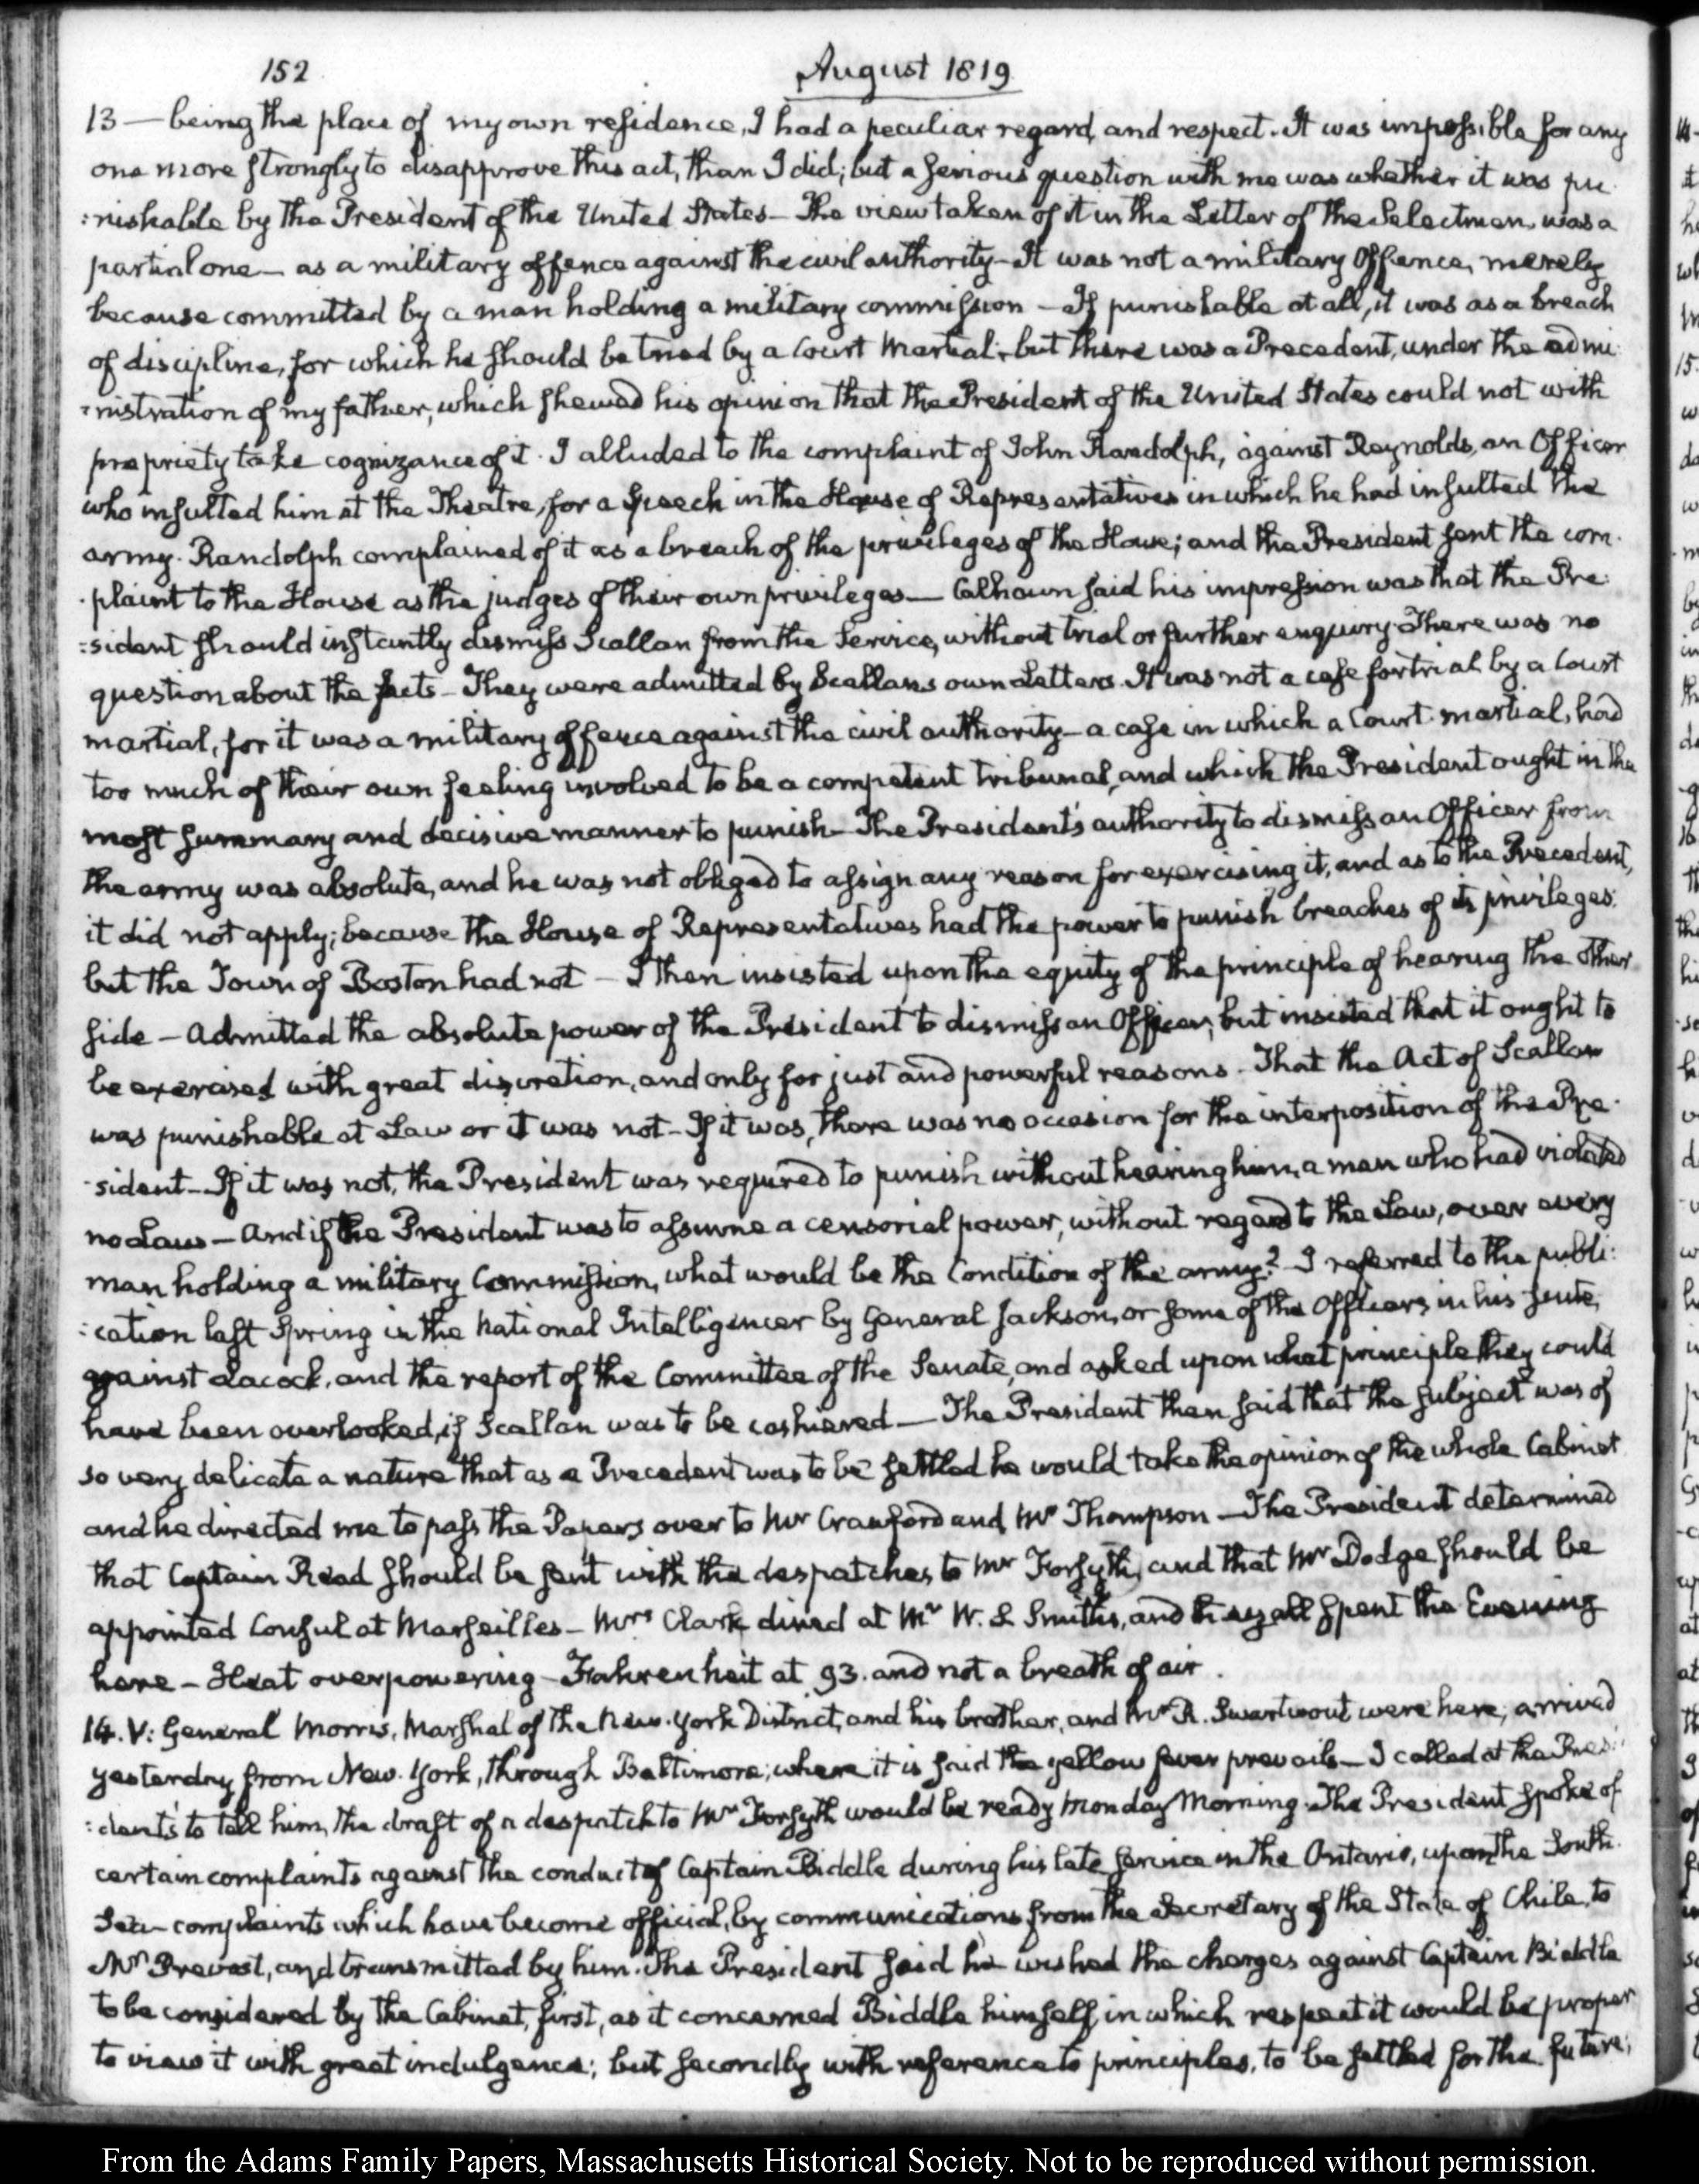 152
August 1819
13 — being the place of my own residence, I had a peculiar regard, and respect. It was impossible for any
one more strongly to disapprove this act, than I did; but a serious question with me was whether it was pu
:nishable by the President of the United States — The view taken of it in the Letter of the Selectmen, was a
partial one — as a military offence against the civil authority — It was not a military Offence, merely
because committed by a man holding a military commission — If punishable at all, it was as a breach
of discipline, for which he should be tried by a Court Martial; but there was a Precedent, under the admi:
:nistration of my father, which shewed his opinion that the President of the United States could not with
propriety take cognizance of it. I alluded to the complaint of John Randolph, against Reynolds, an Officer
who insulted him at the Theatre, for a Speech in the House of Representatives in which he had insulted the
army. Randolph complained of it as a breach of the privileges of the House; and the President sent the com.
.plaint to the House as the judges of their own privileges — Calhoun said his impression was that the Pre:
:sident should instantly dismiss Scallan from the Service, without trial or further enquiry. There was no
question about the facts — They were admitted by Scallans own Letters. It was not a case for trial by a Court
martial, for it was a military offence against the civil authority — a case in which a Court-martial, had
too much of their own feeling involved to be a competent tribunal, and which the President ought in the
most summary and decisive manner to punish — The President's authority to dismiss an Officer from
the army was absolute, and he was not obliged to assign any reason for exercising it, and as to the Precedent,
it did not apply; because the House of Representatives had the power to punish breaches of its privileges:
but the Town of Boston had not — I then insisted upon the equity of the principle of hearing the other
side — Admitted the absolute power of the President to dismiss an Officer; but insisted that it ought to
be exercised with great discretion, and only for just and powerful reasons — That the Act of Scallan
was punishable at Law or it was not — If it was, there was no occasion for the interposition of the Pre-
-sident — If it was not, the President was required to punish without hearing him, a man who had violated
no Law — And if the President was to assume a censorial power, without regard to the Law, over every
man holding a military Commission, what would be the Condition of the army? I referred to the publi:
:cation last Spring in the National Intelligencer by General Jackson, or some of the Officers in his suite,
against Lacock, and the report of the Committee of the Senate, and asked upon what principle they could
have been overlooked, if Scallan was to be cashiered — The President then said that the subject was of
so very delicate a nature that as a Precedent was to be settled he would take the opinion of the whole Cabinet
and he directed me to pass the Papers over to Mr Crawford and Mr Thompson — The President determined
that Captain Read should be sent with the despatches to Mr Forsyth, and that Mr Dodge should be
appointed Consul at Marseilles — Mrs Clark dined at Mr W. S. Smiths, and they all spent the Evening
here — Heat overpowering — Fahrenheit at 93. and not a breath of air.
14. V: General Morris, Marshal of the New-York District, and his brother, and Mr R. Swartwout were here; arrived
yesterday from New-York, through Baltimore; where it is said the yellow fever prevails — I called at the Presi:
:dent's to tell him, the draft of a despatch to Mr Forsyth would be ready Monday Morning. The President spoke of
certain complaints against the conduct of Captain Biddle during his late service in the Ontario, upon the South
Sea — complaints which have become official, by communications from the Secretary of the State of Chile, to
Mr Prevost, and transmitted by him. The President said he wished the charges against Captain Biddle
to be considered by the Cabinet, first, as it concerned Biddle himself, in which respect it would be proper
to view it with great indulgence; but secondly with reference to principles, to be settled for the future;
From the Adams Family Papers, Massachusetts Historical Society. Not to be reproduced without permission.